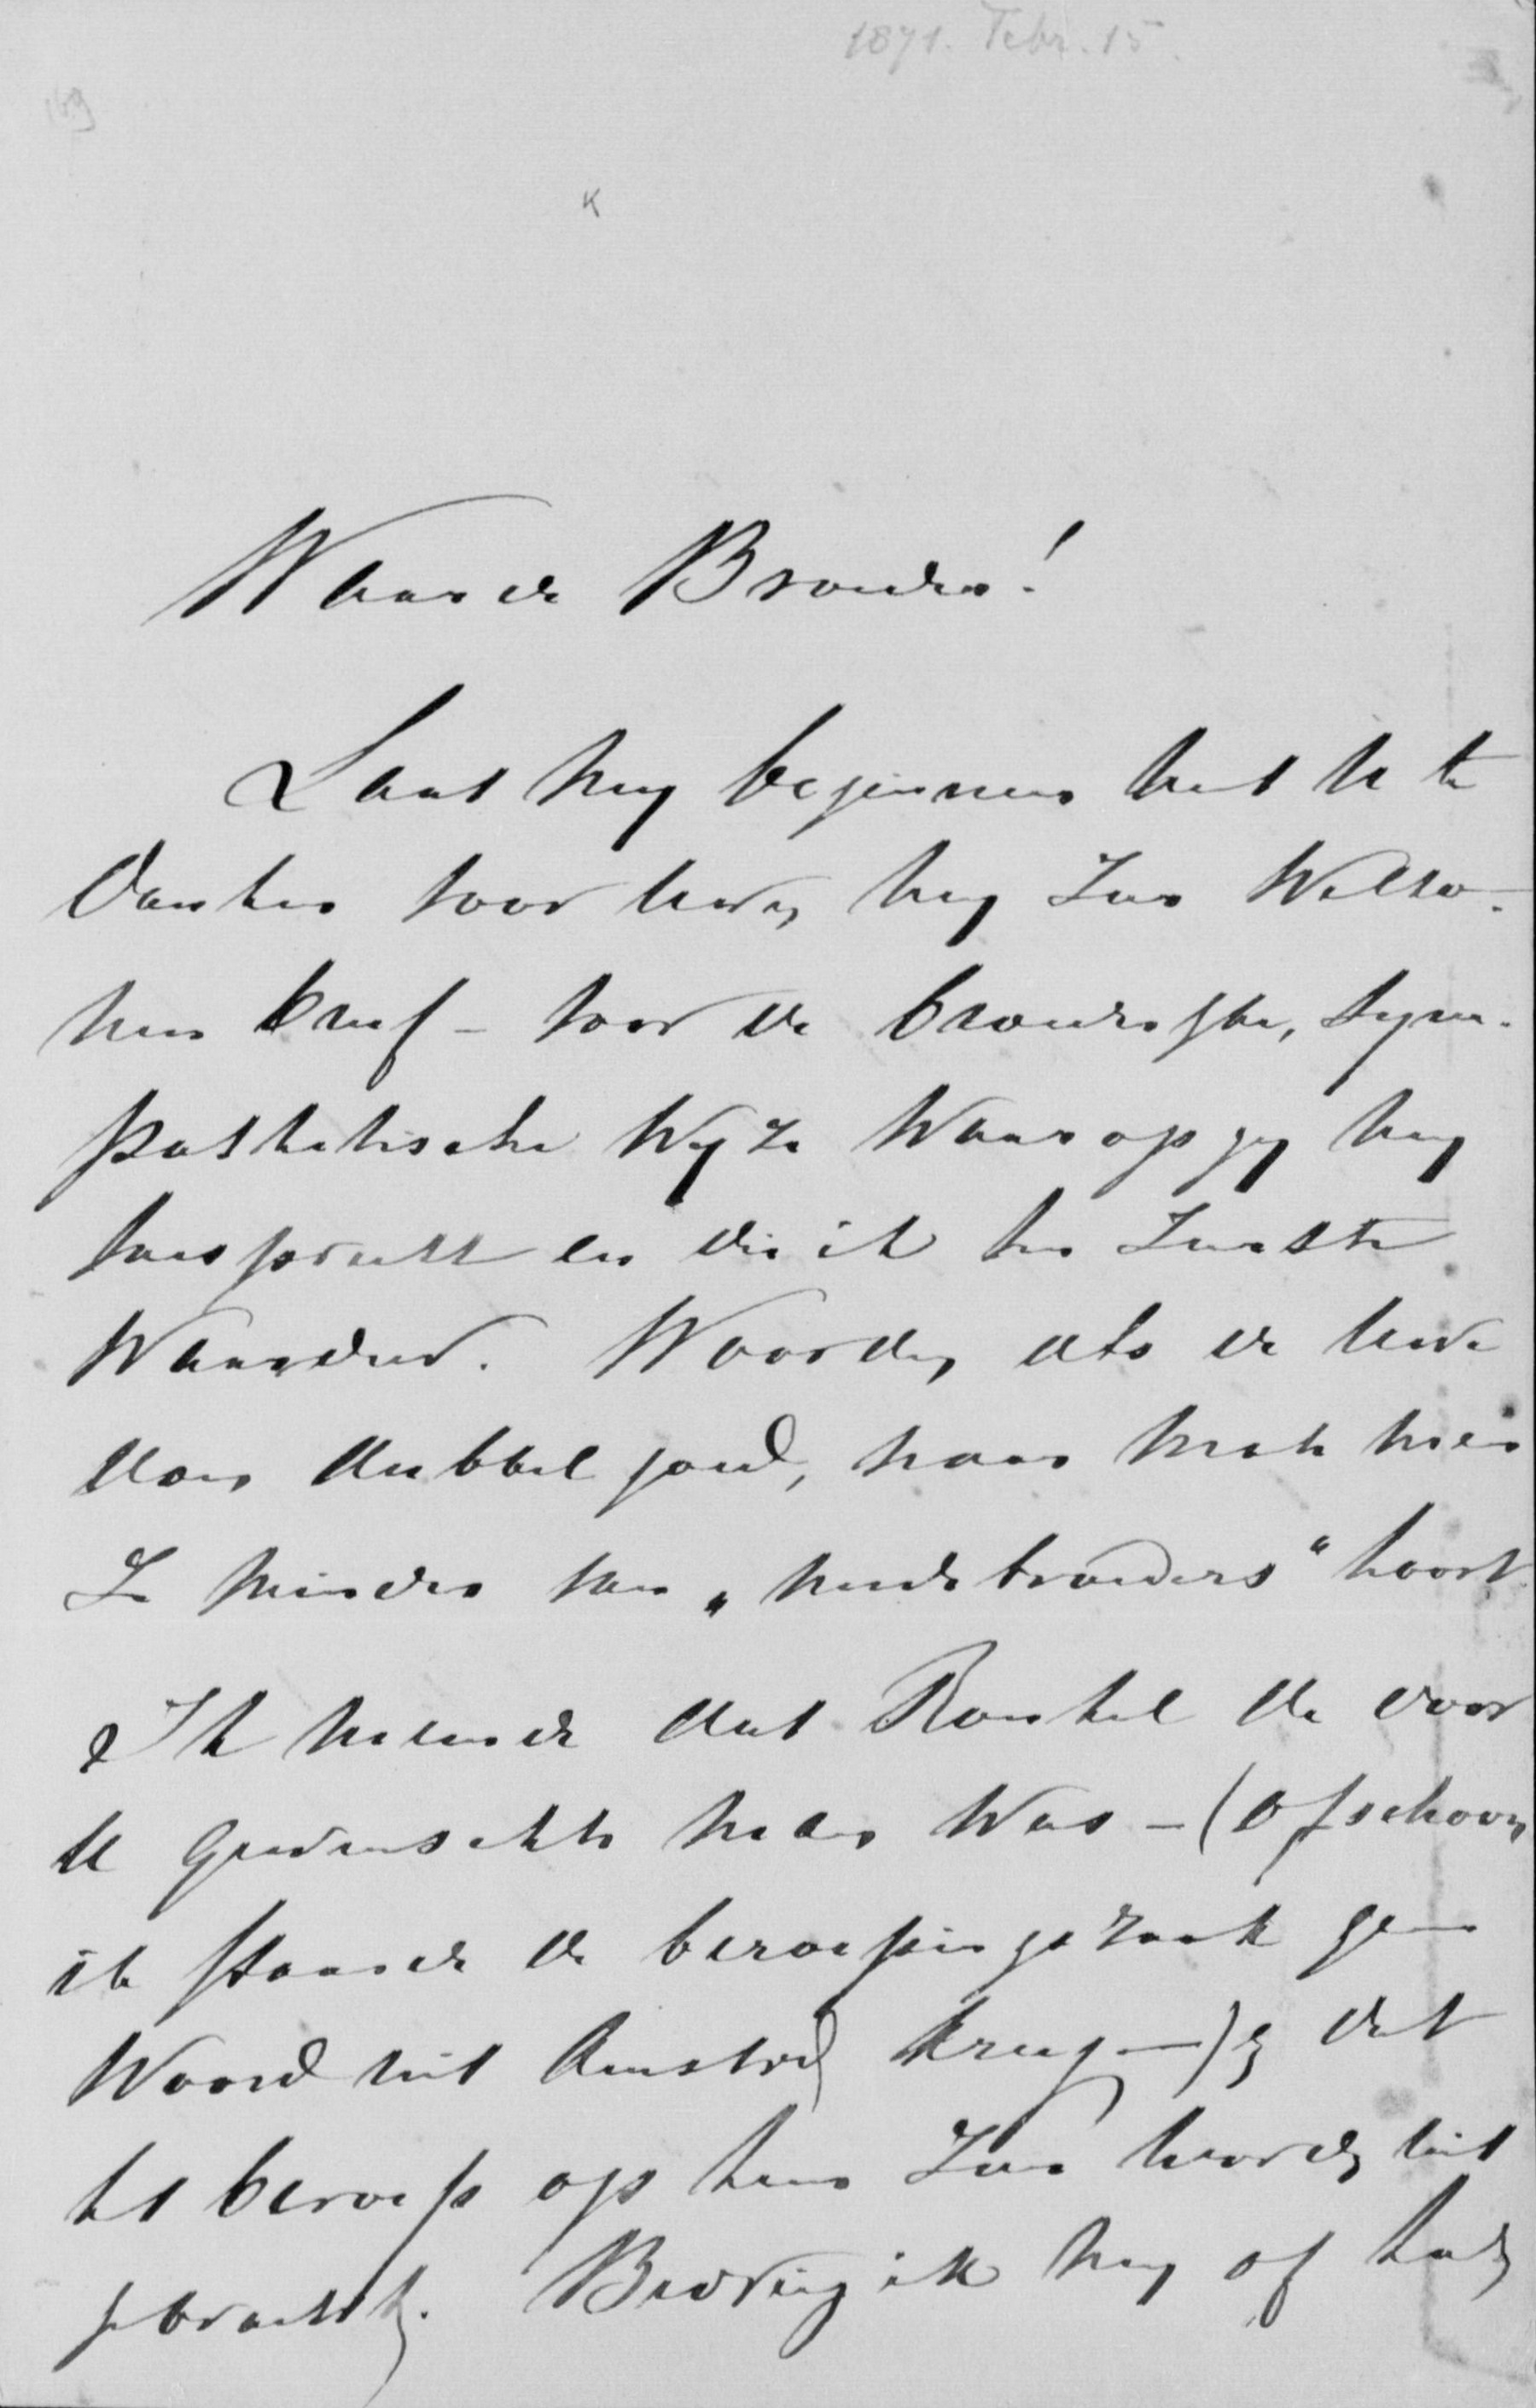 1871. Febr. 15.
169
K
Waarde Broeder!
Laat my beginnen met U te
danken voor Uwen my zoo welko-
men brief – voor de broederlyke, sym-
pathetische wyze waarop gy my
toespreekt en die ik ten zeerste
waardeer. Woorden als de Uwe
doen dubbel goed, naar mate men
ze minder van „medebroeders" hoort
Ik meende dat Ronkel de door
U gewenschte man was – (ofschoon
ik staande de beroepingszaak geen
woord uit Amstdm kreeg –) en dat
het beroep op hem zou worden uit
gebracht. Bedrieg ik my of had